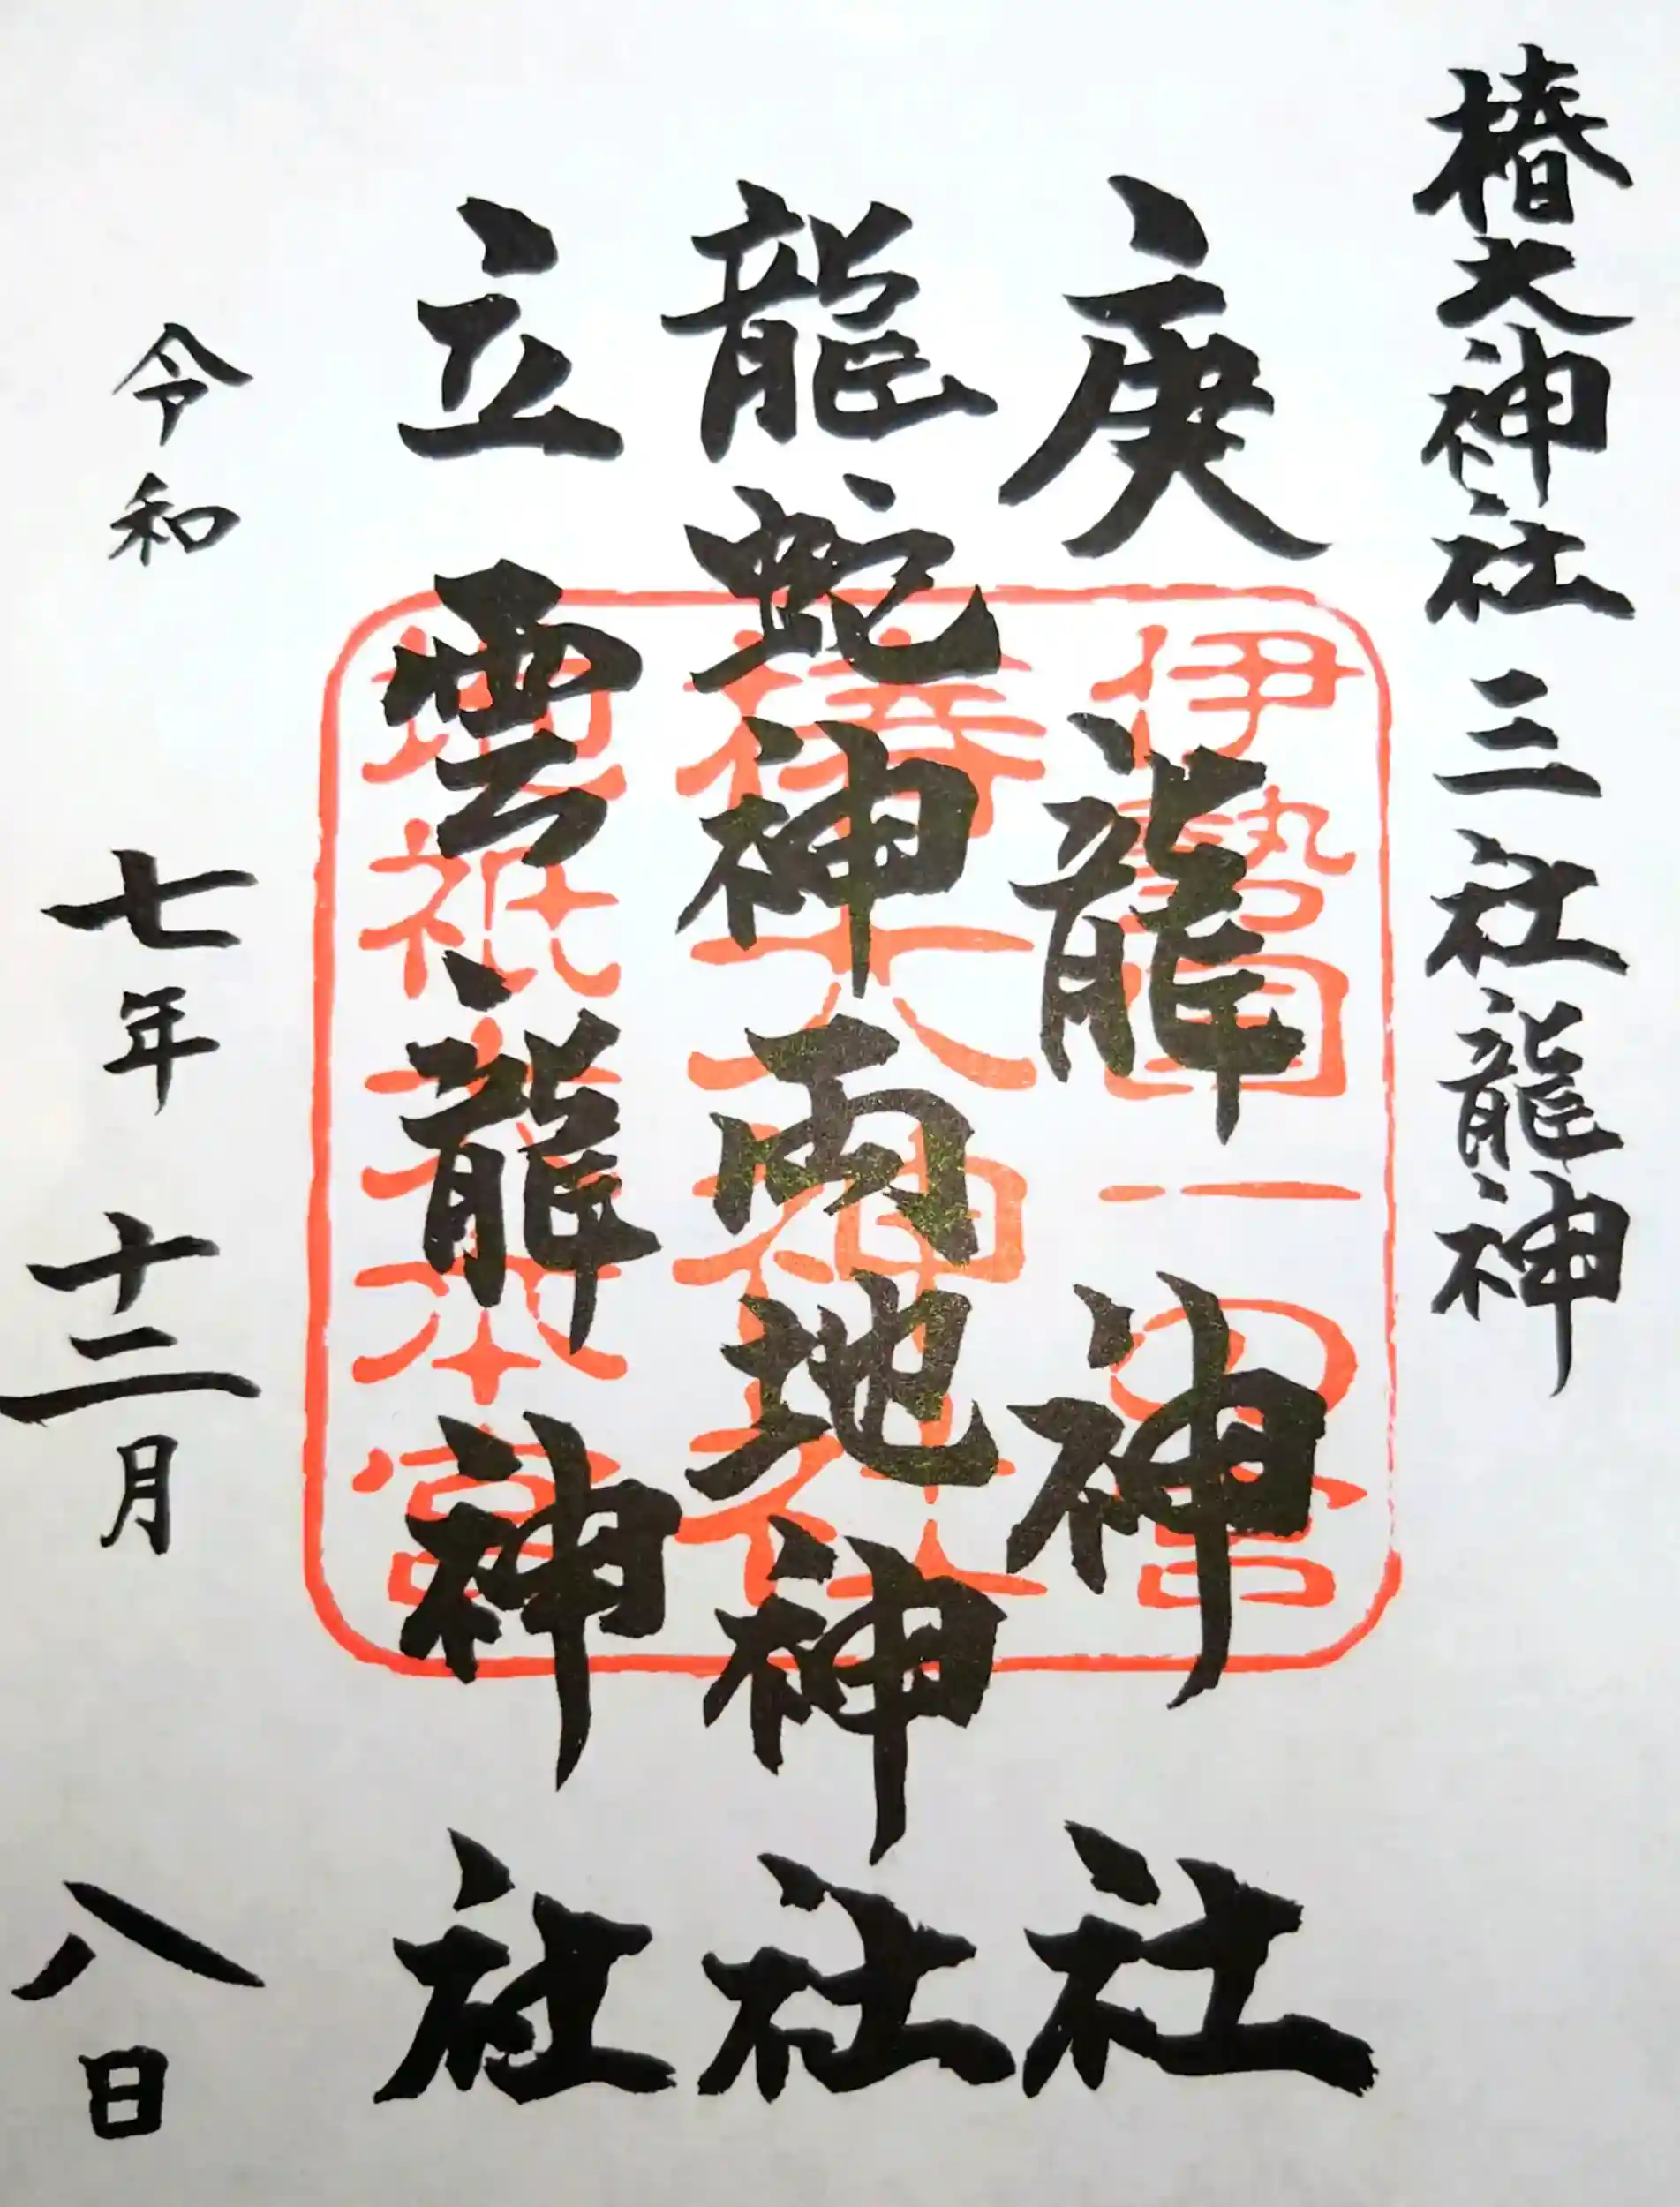 椿大神社 三社龍神
庚龍神社
龍蛇神両地神社
立雲龍神社
令和七年十二月八日
伊勢国一之宮
椿大神社
地祇大本宮